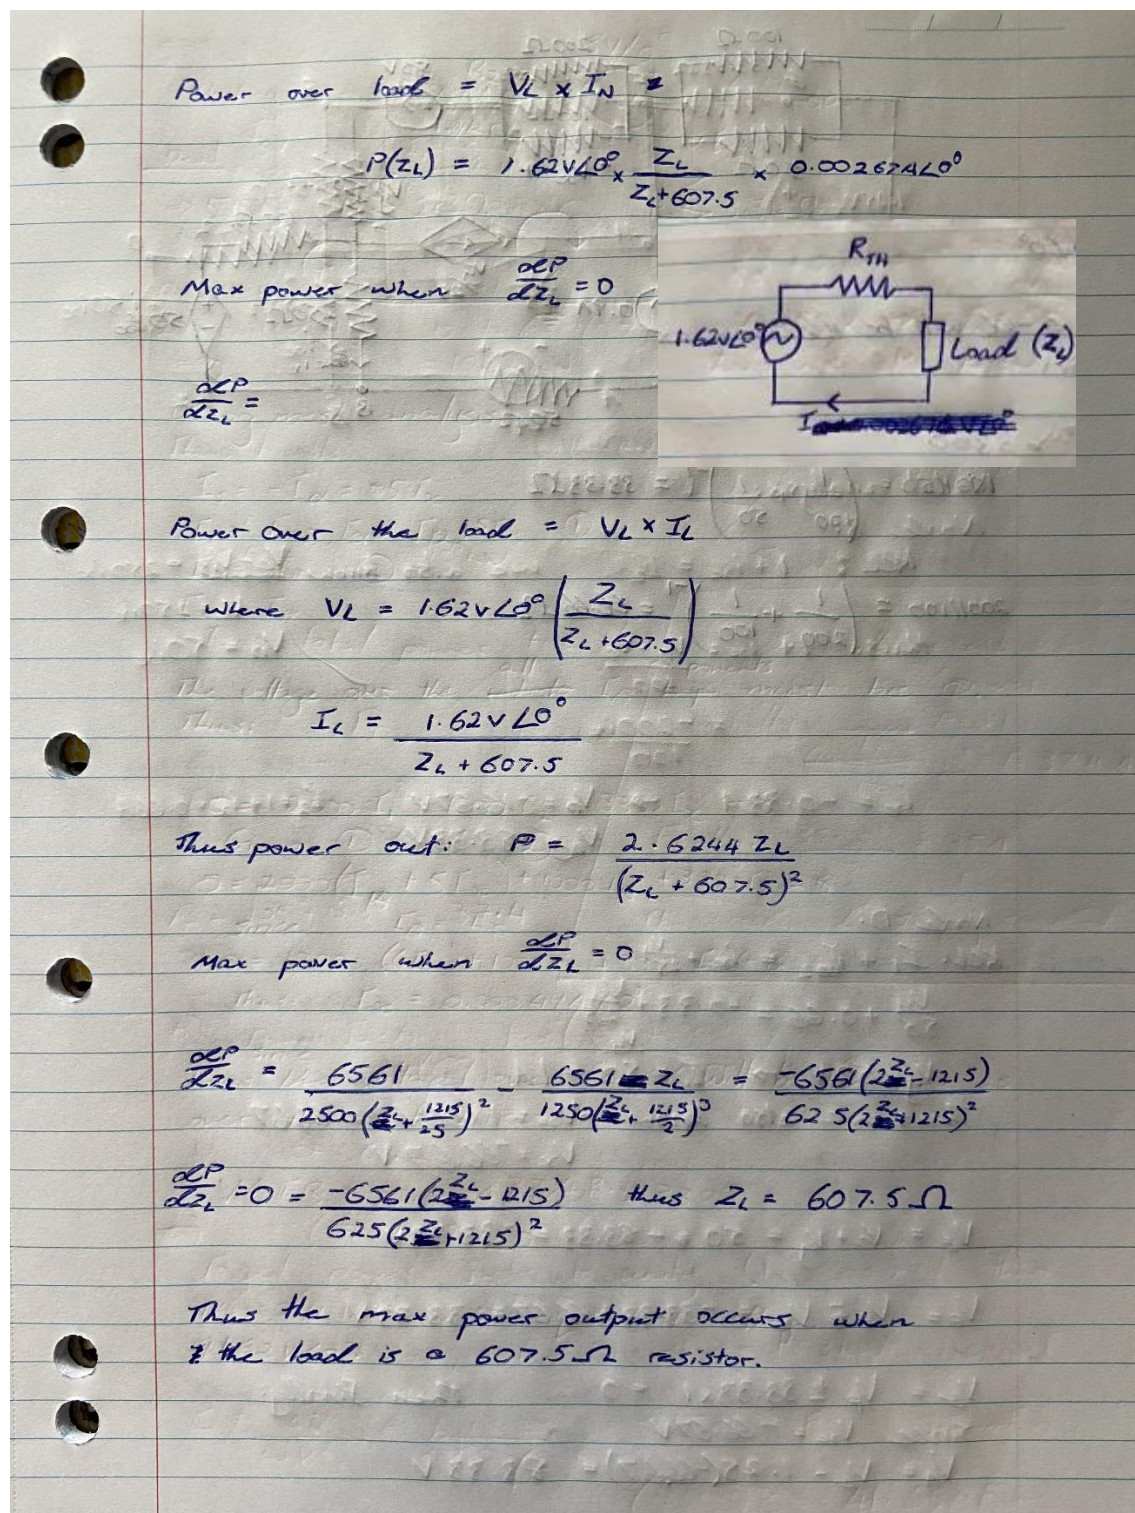 Power over load = VL x IN
P(ZL) = 1.62V∠0° x ZL / ZL+607.5 x 0.00267A∠0°
Max power when dP/dZL = 0
RTH
1.62V∠0°
Load (ZL)
I
dP/dZL =
Power over the load = VL x IL
where VL = 1.62V∠0° (ZL / ZL+607.5)
IL = 1.62V∠0° / ZL + 607.5
Thus power out: P = 2.6244 ZL / (ZL + 607.5)²
Max power when dP/dZL = 0
dP/dZL = 6561 / 2500(ZL + 1215/25)² - 6561 ZL / 1250(ZL + 1215/2)³ = -6561(2ZL - 1215) / 625(2ZL+1215)²
dP/dZL = 0 = -6561(2ZL - 1215) / 625(2ZL+1215)² thus ZL = 607.5Ω
Thus the max power output occurs when
the load is a 607.5Ω resistor.